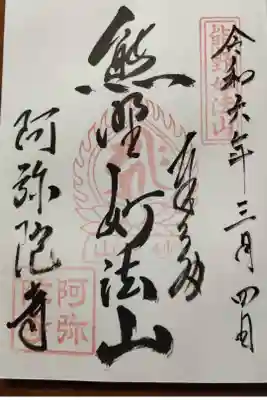 令和六年三月四日
奉拝
熊野妙法山
阿弥陀寺
熊野妙法山
阿弥陀寺